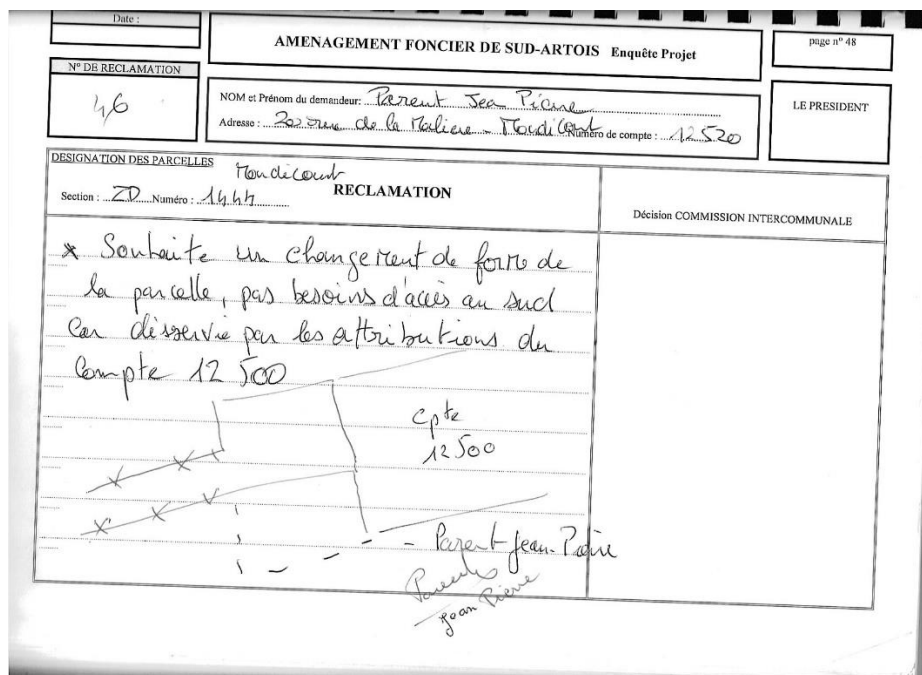 Date :
AMENAGEMENT FONCIER DE SUD-ARTOIS Enquête Projet
page n° 48
N° DE RECLAMATION
46
NOM et Prénom du demandeur: Parent Jean Pierre
Adresse : rue de la - Mondicourt Numéro de compte : 12520
LE PRESIDENT
DESIGNATION DES PARCELLES
Mondicourt
Section : ZD Numéro : 1444
RECLAMATION
Décision COMMISSION INTERCOMMUNALE
* Souhaite un changement de forme de
la parcelle, pas besoins d'accès au sud
Car désservie par les attributions du
Compte 12 500
Cpte
12500
Parent Jean-Pierre
Parent
Jean Pierre